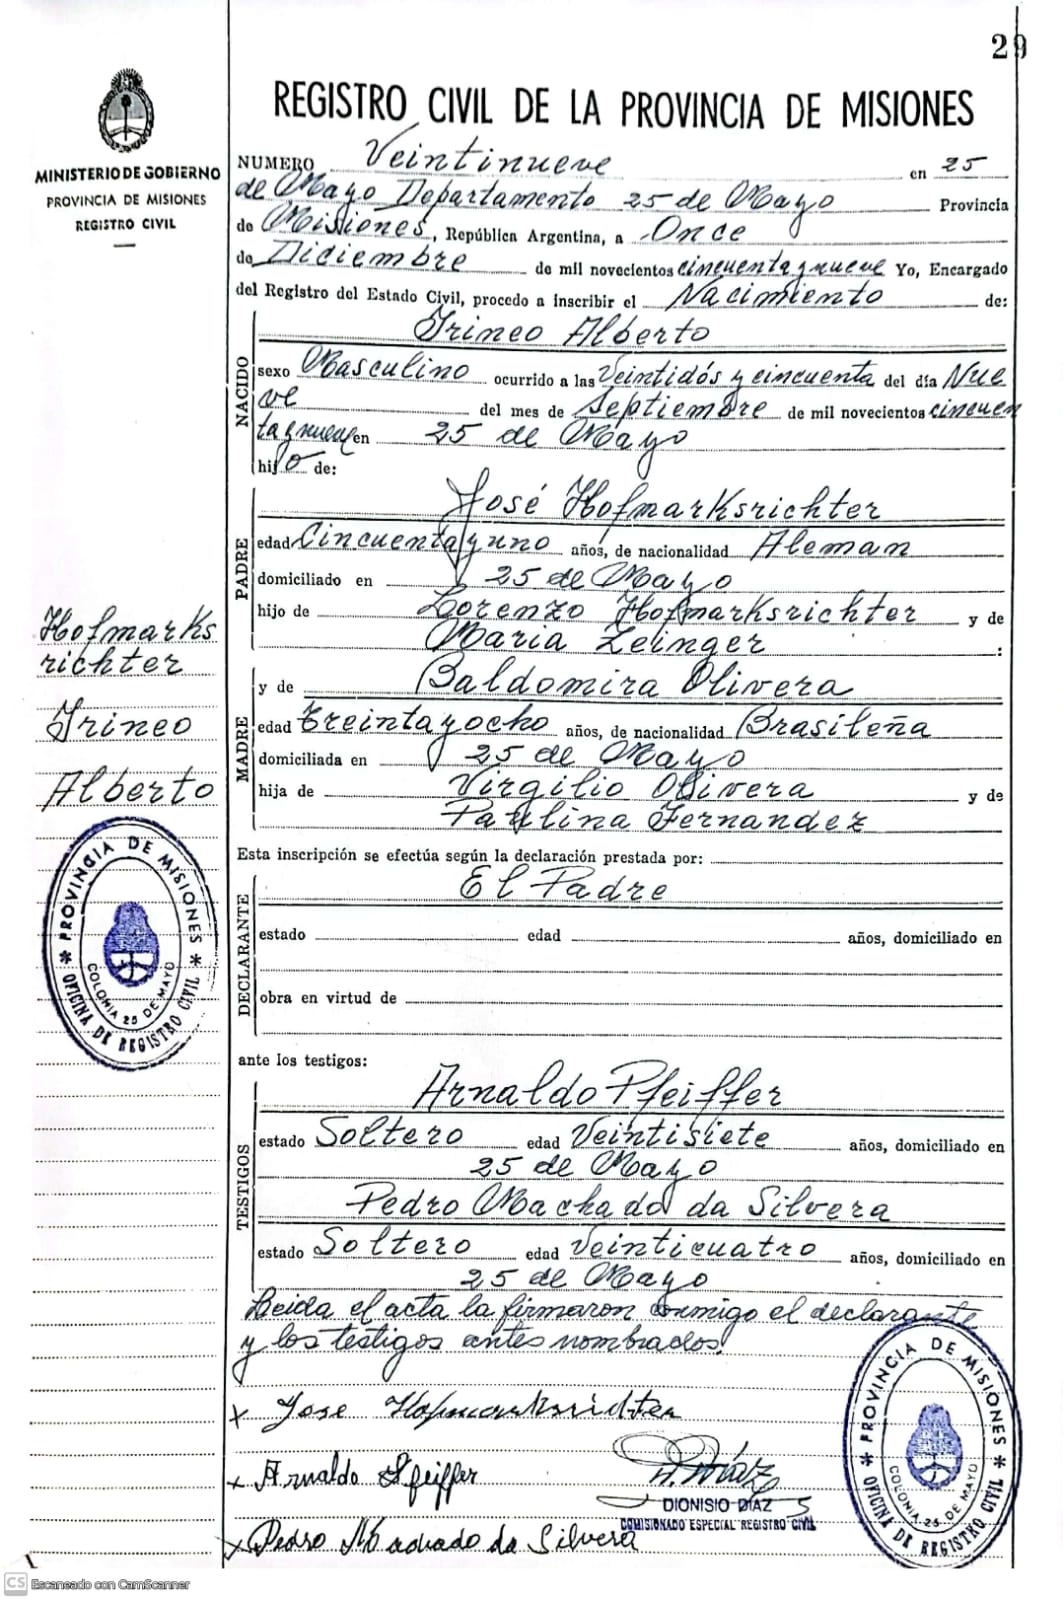 29
MINISTERIO DE GOBIERNO
PROVINCIA DE MISIONES
REGISTRO CIVIL
REGISTRO CIVIL DE LA PROVINCIA DE MISIONES
NUMERO Veintinueve en 25
de Mayo Departamento 25 de Mayo Provincia
de Misiones, República Argentina, a Once
de Diciembre de mil novecientos cincuenta y nueve Yo, Encargado
del Registro del Estado Civil, procedo a inscribir el Nacimiento de:
NACIDO
Irineo Alberto
sexo Masculino ocurrido a las Veintidós y cincuenta del día Nue
ve del mes de Septiembre de mil novecientos cincuen
ta y nueve en 25 de Mayo
hijo de:
PADRE
José Hofmarksrichter
edad Cincuenta y uno años, de nacionalidad Aleman
domiciliado en 25 de Mayo
hijo de Lorenzo Hofmarksrichter y de
Maria Zelinger :
MADRE
y de Baldomira Olivera
edad Treinta y ocho años, de nacionalidad Brasileña
domiciliada en 25 de Mayo
hija de Virgilio Olivera y de
Paulina Fernandez
Hofmarks
richter
Irineo
Alberto
Esta inscripción se efectúa según la declaración prestada por:
DECLARANTE
El Padre
estado edad años, domiciliado en
obra en virtud de
PROVINCIA DE MISIONES
COLONIA 25 DE MAYO
* OFICINA DE REGISTRO CIVIL *
ante los testigos:
TESTIGOS
Arnaldo Pfeiffer
estado Soltero edad Veintisiete años, domiciliado en
25 de Mayo
Pedro Machado da Silvera
estado Soltero edad Veinticuatro años, domiciliado en
25 de Mayo
Leida el acta la firmaron conmigo el declarante
y los testigos antes nombrados.
x Jose Hofmarksrichter
x Arnaldo Pfeiffer
D. Díaz
DIONISIO DIAZ
COMISIONADO ESPECIAL REGISTRO CIVIL
x Pedro Machado da Silvera
PROVINCIA DE MISIONES
COLONIA 25 DE MAYO
* OFICINA DE REGISTRO CIVIL *
CS Escaneado con CamScanner